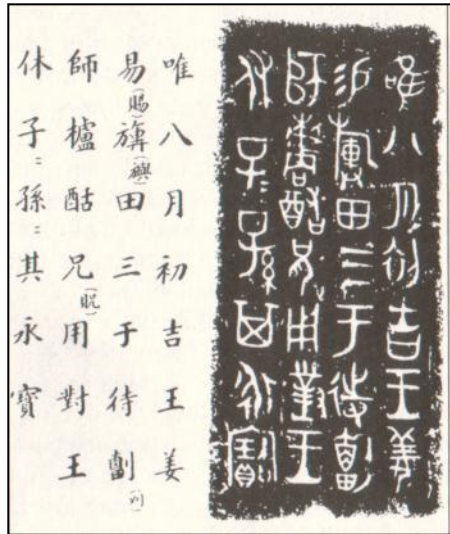 唯八月初吉王姜
易(賜)旟田三于待劃
師櫨酤兄(貺)用對王
休子=孫=其永寶